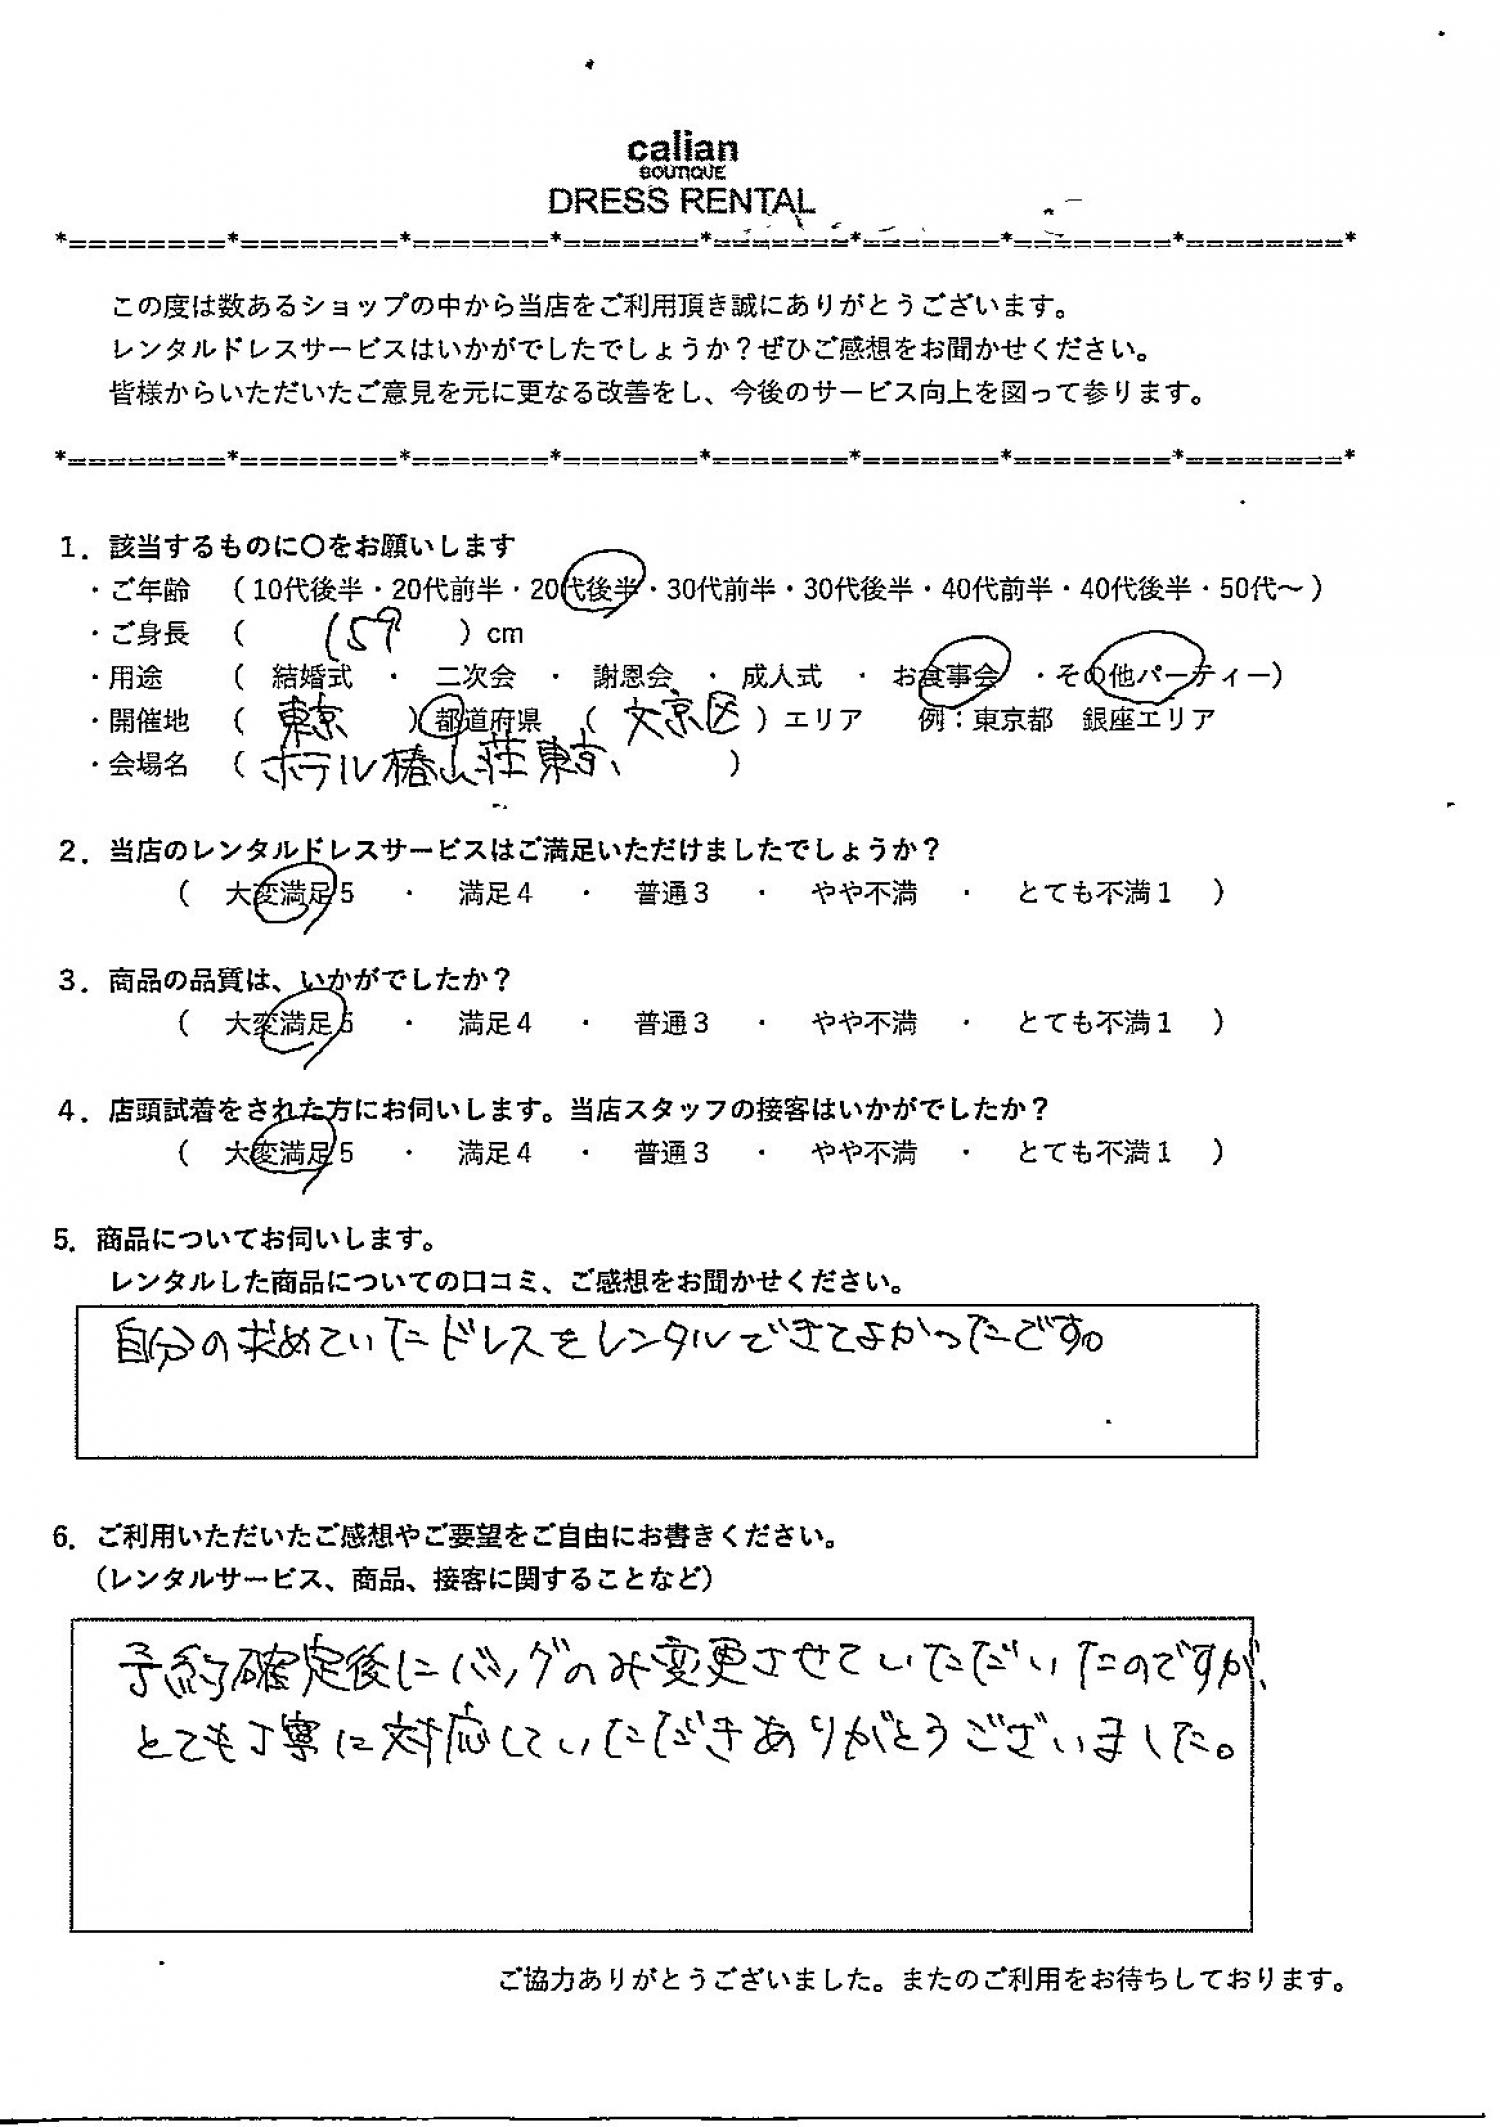 calian
BOUTIQUE
DRESS RENTAL
*========*========*=======*=======*=======*=======*========*========*
この度は数あるショップの中から当店をご利用頂き誠にありがとうございます。
レンタルドレスサービスはいかがでしたでしょうか？ぜひご感想をお聞かせください。
皆様からいただいたご意見を元に更なる改善をし、今後のサービス向上を図って参ります。
*========*========*=======*=======*=======*=======*========*========*
1．該当するものに〇をお願いします
・ご年齢 （10代後半・20代前半・20代後半・30代前半・30代後半・40代前半・40代後半・50代～）
・ご身長 （ 159 ）cm
・用途 （ 結婚式 ・ 二次会 ・ 謝恩会 ・ 成人式 ・ お食事会 ・その他パーティー）
・開催地 （ 東京 ）都道府県 （ 文京区 ）エリア 例：東京都 銀座エリア
・会場名 （ ホテル椿山荘東京 ）
2．当店のレンタルドレスサービスはご満足いただけましたでしょうか？
（ 大変満足5 ・ 満足4 ・ 普通3 ・ やや不満 ・ とても不満1 ）
3．商品の品質は、いかがでしたか？
（ 大変満足5 ・ 満足4 ・ 普通3 ・ やや不満 ・ とても不満1 ）
4．店頭試着をされた方にお伺いします。当店スタッフの接客はいかがでしたか？
（ 大変満足5 ・ 満足4 ・ 普通3 ・ やや不満 ・ とても不満1 ）
5．商品についてお伺いします。
レンタルした商品についての口コミ、ご感想をお聞かせください。
自分の求めていたドレスをレンタルできてよかったです。
6．ご利用いただいたご感想やご要望をご自由にお書きください。
（レンタルサービス、商品、接客に関することなど）
予約確定後にバッグのみ変更させていただいたのですが、
とても丁寧に対応していただきありがとうございました。
ご協力ありがとうございました。またのご利用をお待ちしております。